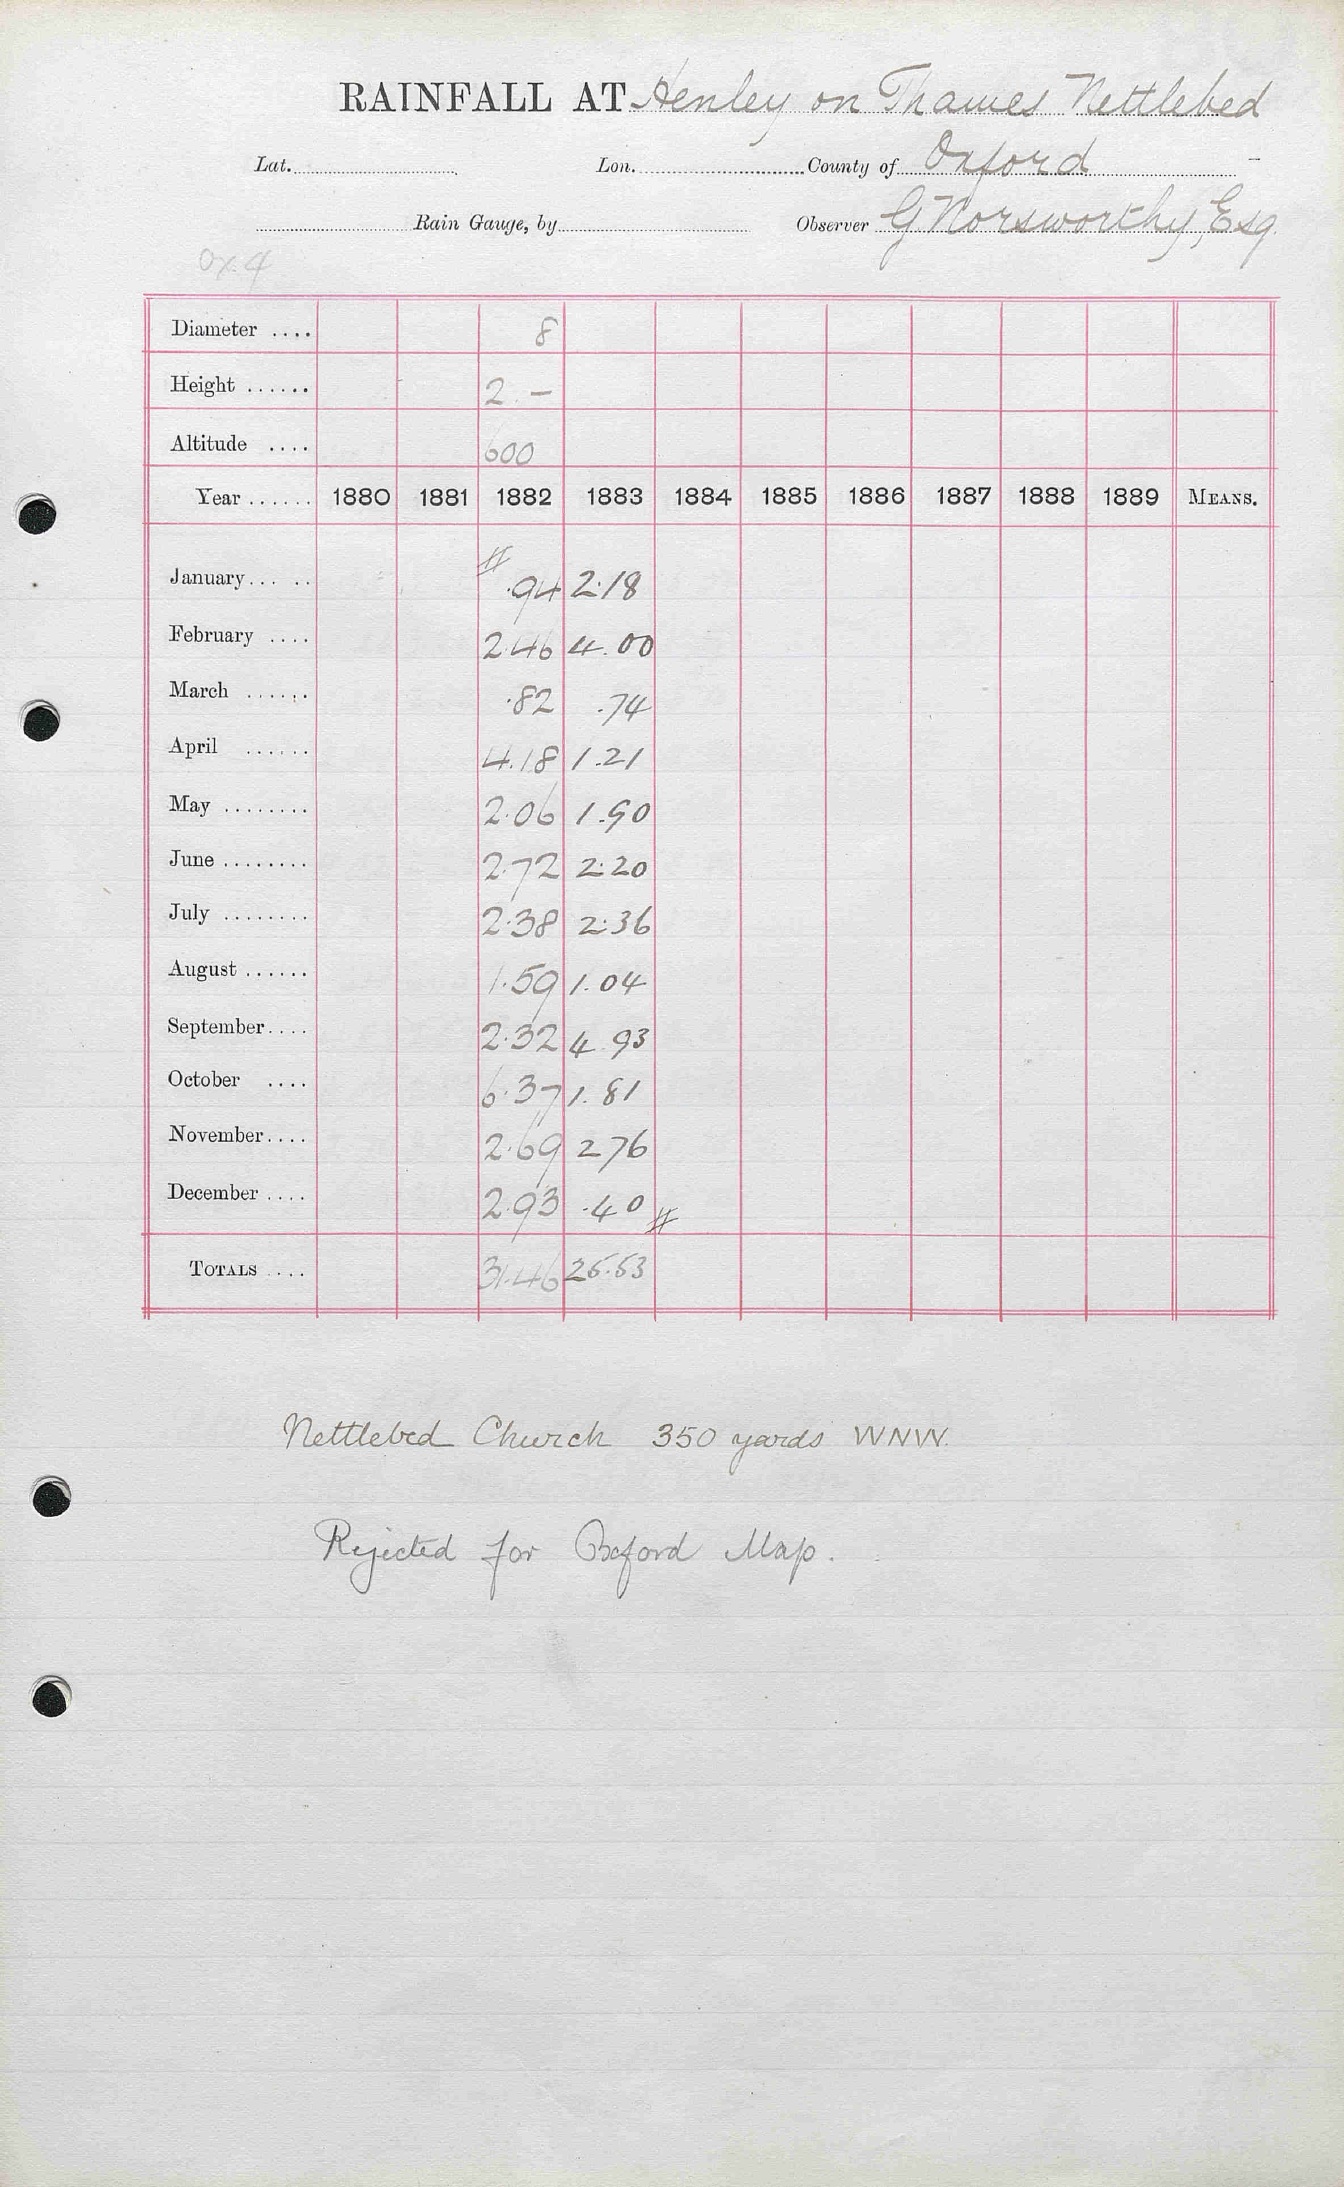 RAINFALL AT Henley on Thames Nettlebed
Lat. Lon. County of Oxford
Rain Gauge, by Observer G Norsworthy, Esq.
Ox. 4
Diameter .... 8
Height ...... 2 . –
Altitude .... 600
Year ...... 1880 1881 1882 1883 1884 1885 1886 1887 1888 1889 MEANS.
January ... .. # .94 2.18
February .... 2.46 4.00
March ...... .82 .74
April ...... 4.18 1.21
May ........ 2.06 1.90
June ........ 2.72 2.20
July ........ 2.38 2.36
August ...... 1.59 1.04
September.... 2.32 4.93
October .... 6.37 1.81
November.... 2.69 2 76
December .... 2.93 .40 #
TOTALS .... 31.46 25.53
Nettlebed Church 350 yards WNW.
Rejected for Oxford Map.